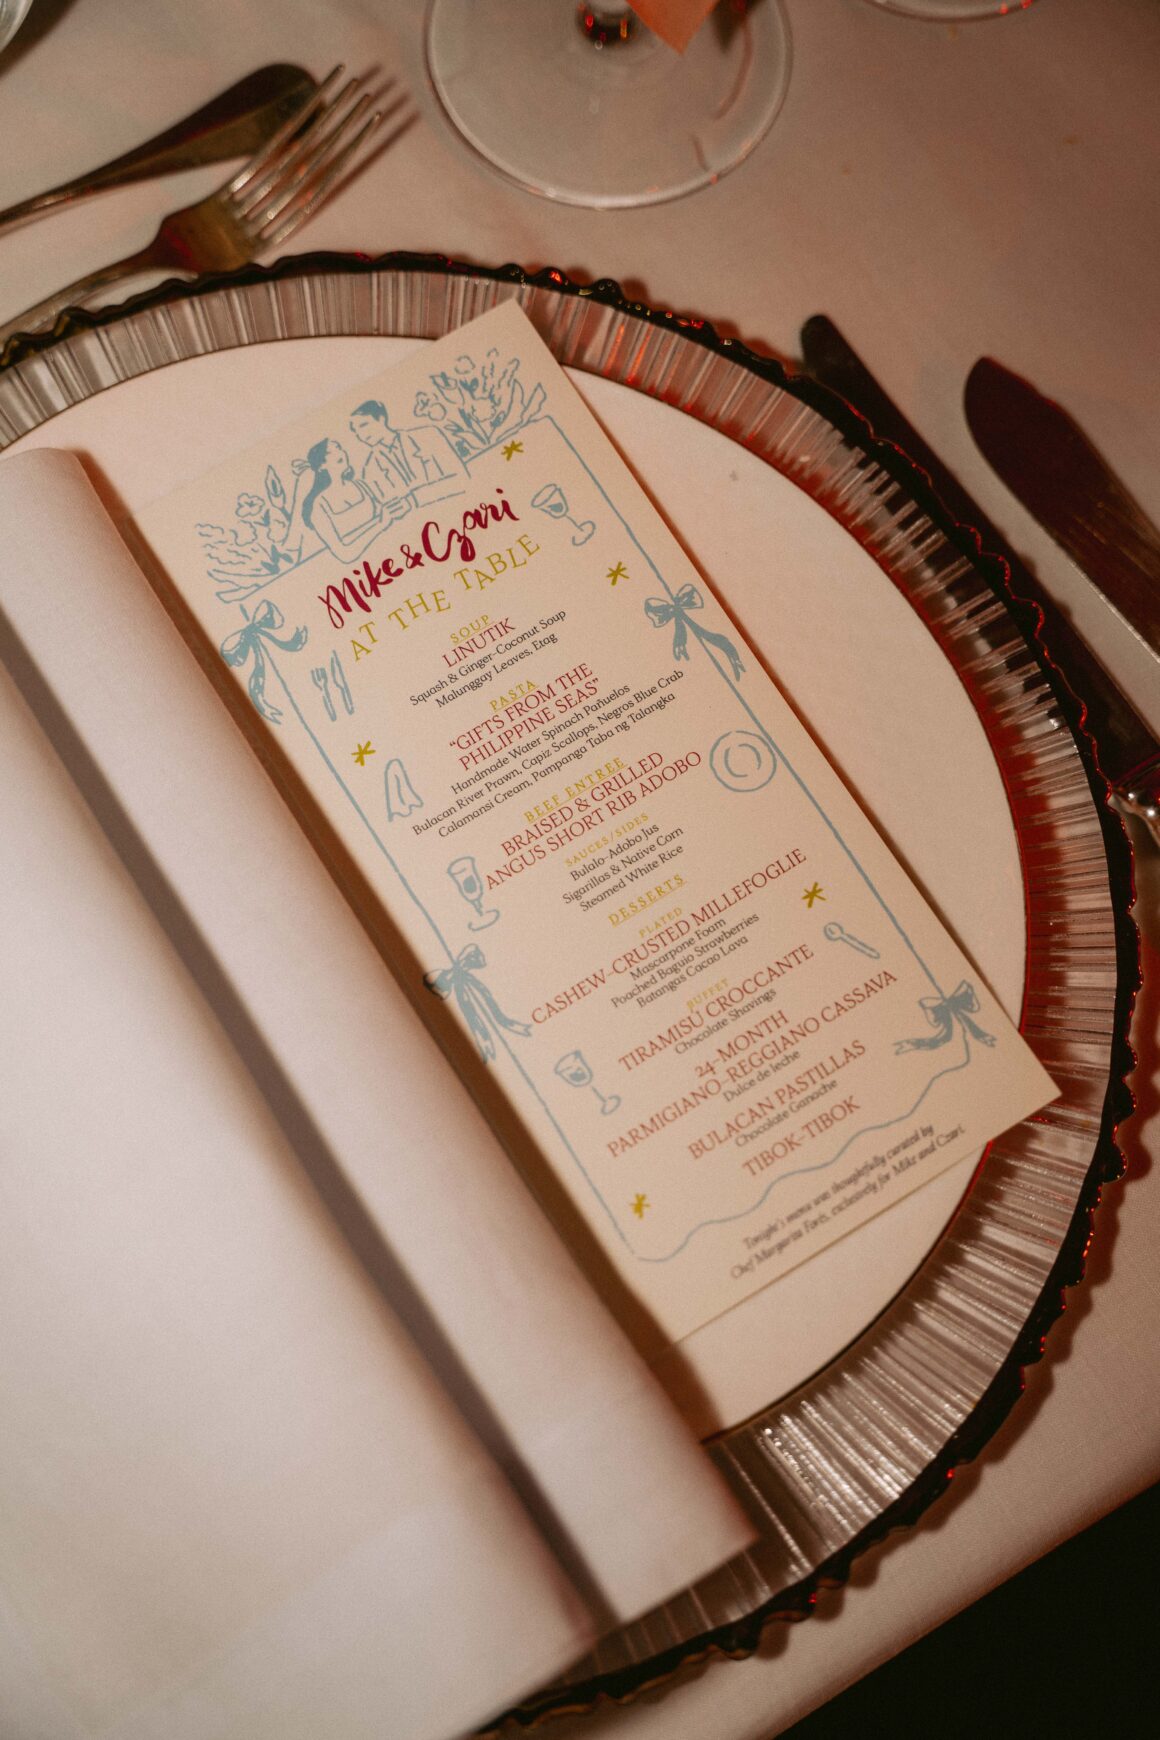 Mike & Czari
AT THE TABLE
SOUP
LINUTIK
Squash & Ginger-Coconut Soup
Malunggay Leaves, Etag
PASTA
"GIFTS FROM THE
PHILIPPINE SEAS"
Handmade Water Spinach Pañuelos
Bulacan River Prawn, Capiz Scallops, Negros Blue Crab
Calamansi Cream, Pampanga Taba ng Talangka
BEEF ENTREE
BRAISED & GRILLED
ANGUS SHORT RIB ADOBO
SAUCES/SIDES
Bulalo-Adobo Jus
Sigarillas & Native Corn
Steamed White Rice
DESSERTS
PLATED
CASHEW-CRUSTED MILLEFOGLIE
Mascarpone Foam
Poached Baguio Strawberries
Batangas Cacao Lava
BUFFET
TIRAMISÙ CROCCANTE
Chocolate Shavings
24-MONTH
PARMIGIANO-REGGIANO CASSAVA
Dulce de leche
BULACAN PASTILLAS
Chocolate Ganache
TIBOK-TIBOK
Tonight's menu was thoughtfully curated by
Chef Margarita Forés, exclusively for Mike and Czari.